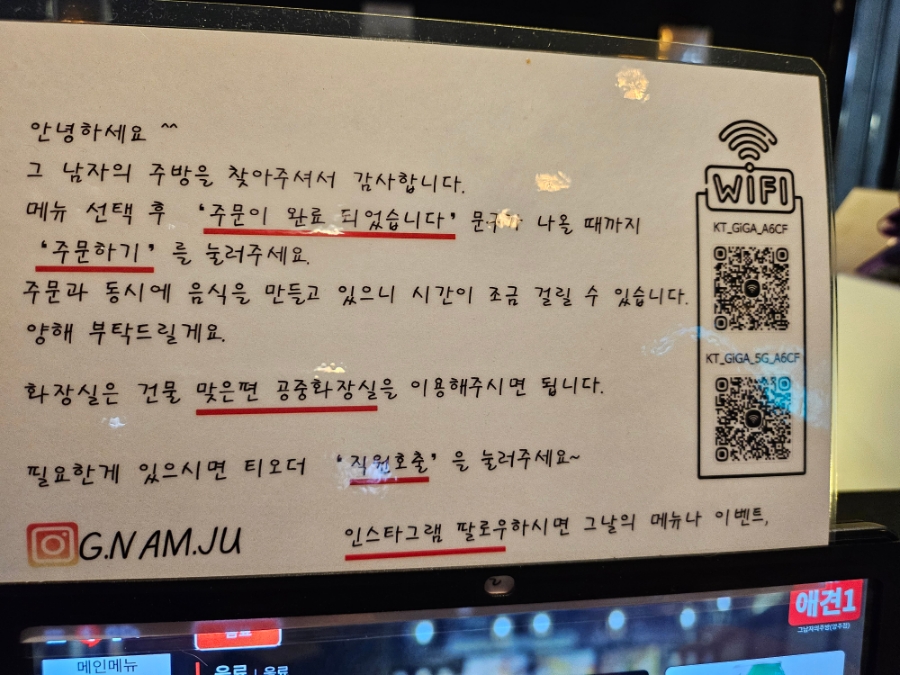 안녕하세요 ^^
그 남자의 주방을 찾아주셔서 감사합니다.
메뉴 선택 후 '주문이 완료 되었습니다' 나올 때까지
'주문하기' 를 눌러주세요.
주문과 동시에 음식을 만들고 있으니 시간이 조금 걸릴 수 있습니다.
양해 부탁드릴게요.
화장실은 건물 맞은편 공중화장실을 이용해주시면 됩니다.
필요한게 있으시면 티오더 '직원호출' 을 눌러주세요~
G.NAM.JU
인스타그램 팔로우하시면 그날의 메뉴나 이벤트,
WIFI
KT_GiGA_A6CF
KT_GiGA_5G_A6CF
애견1
메인메뉴
음료
음료